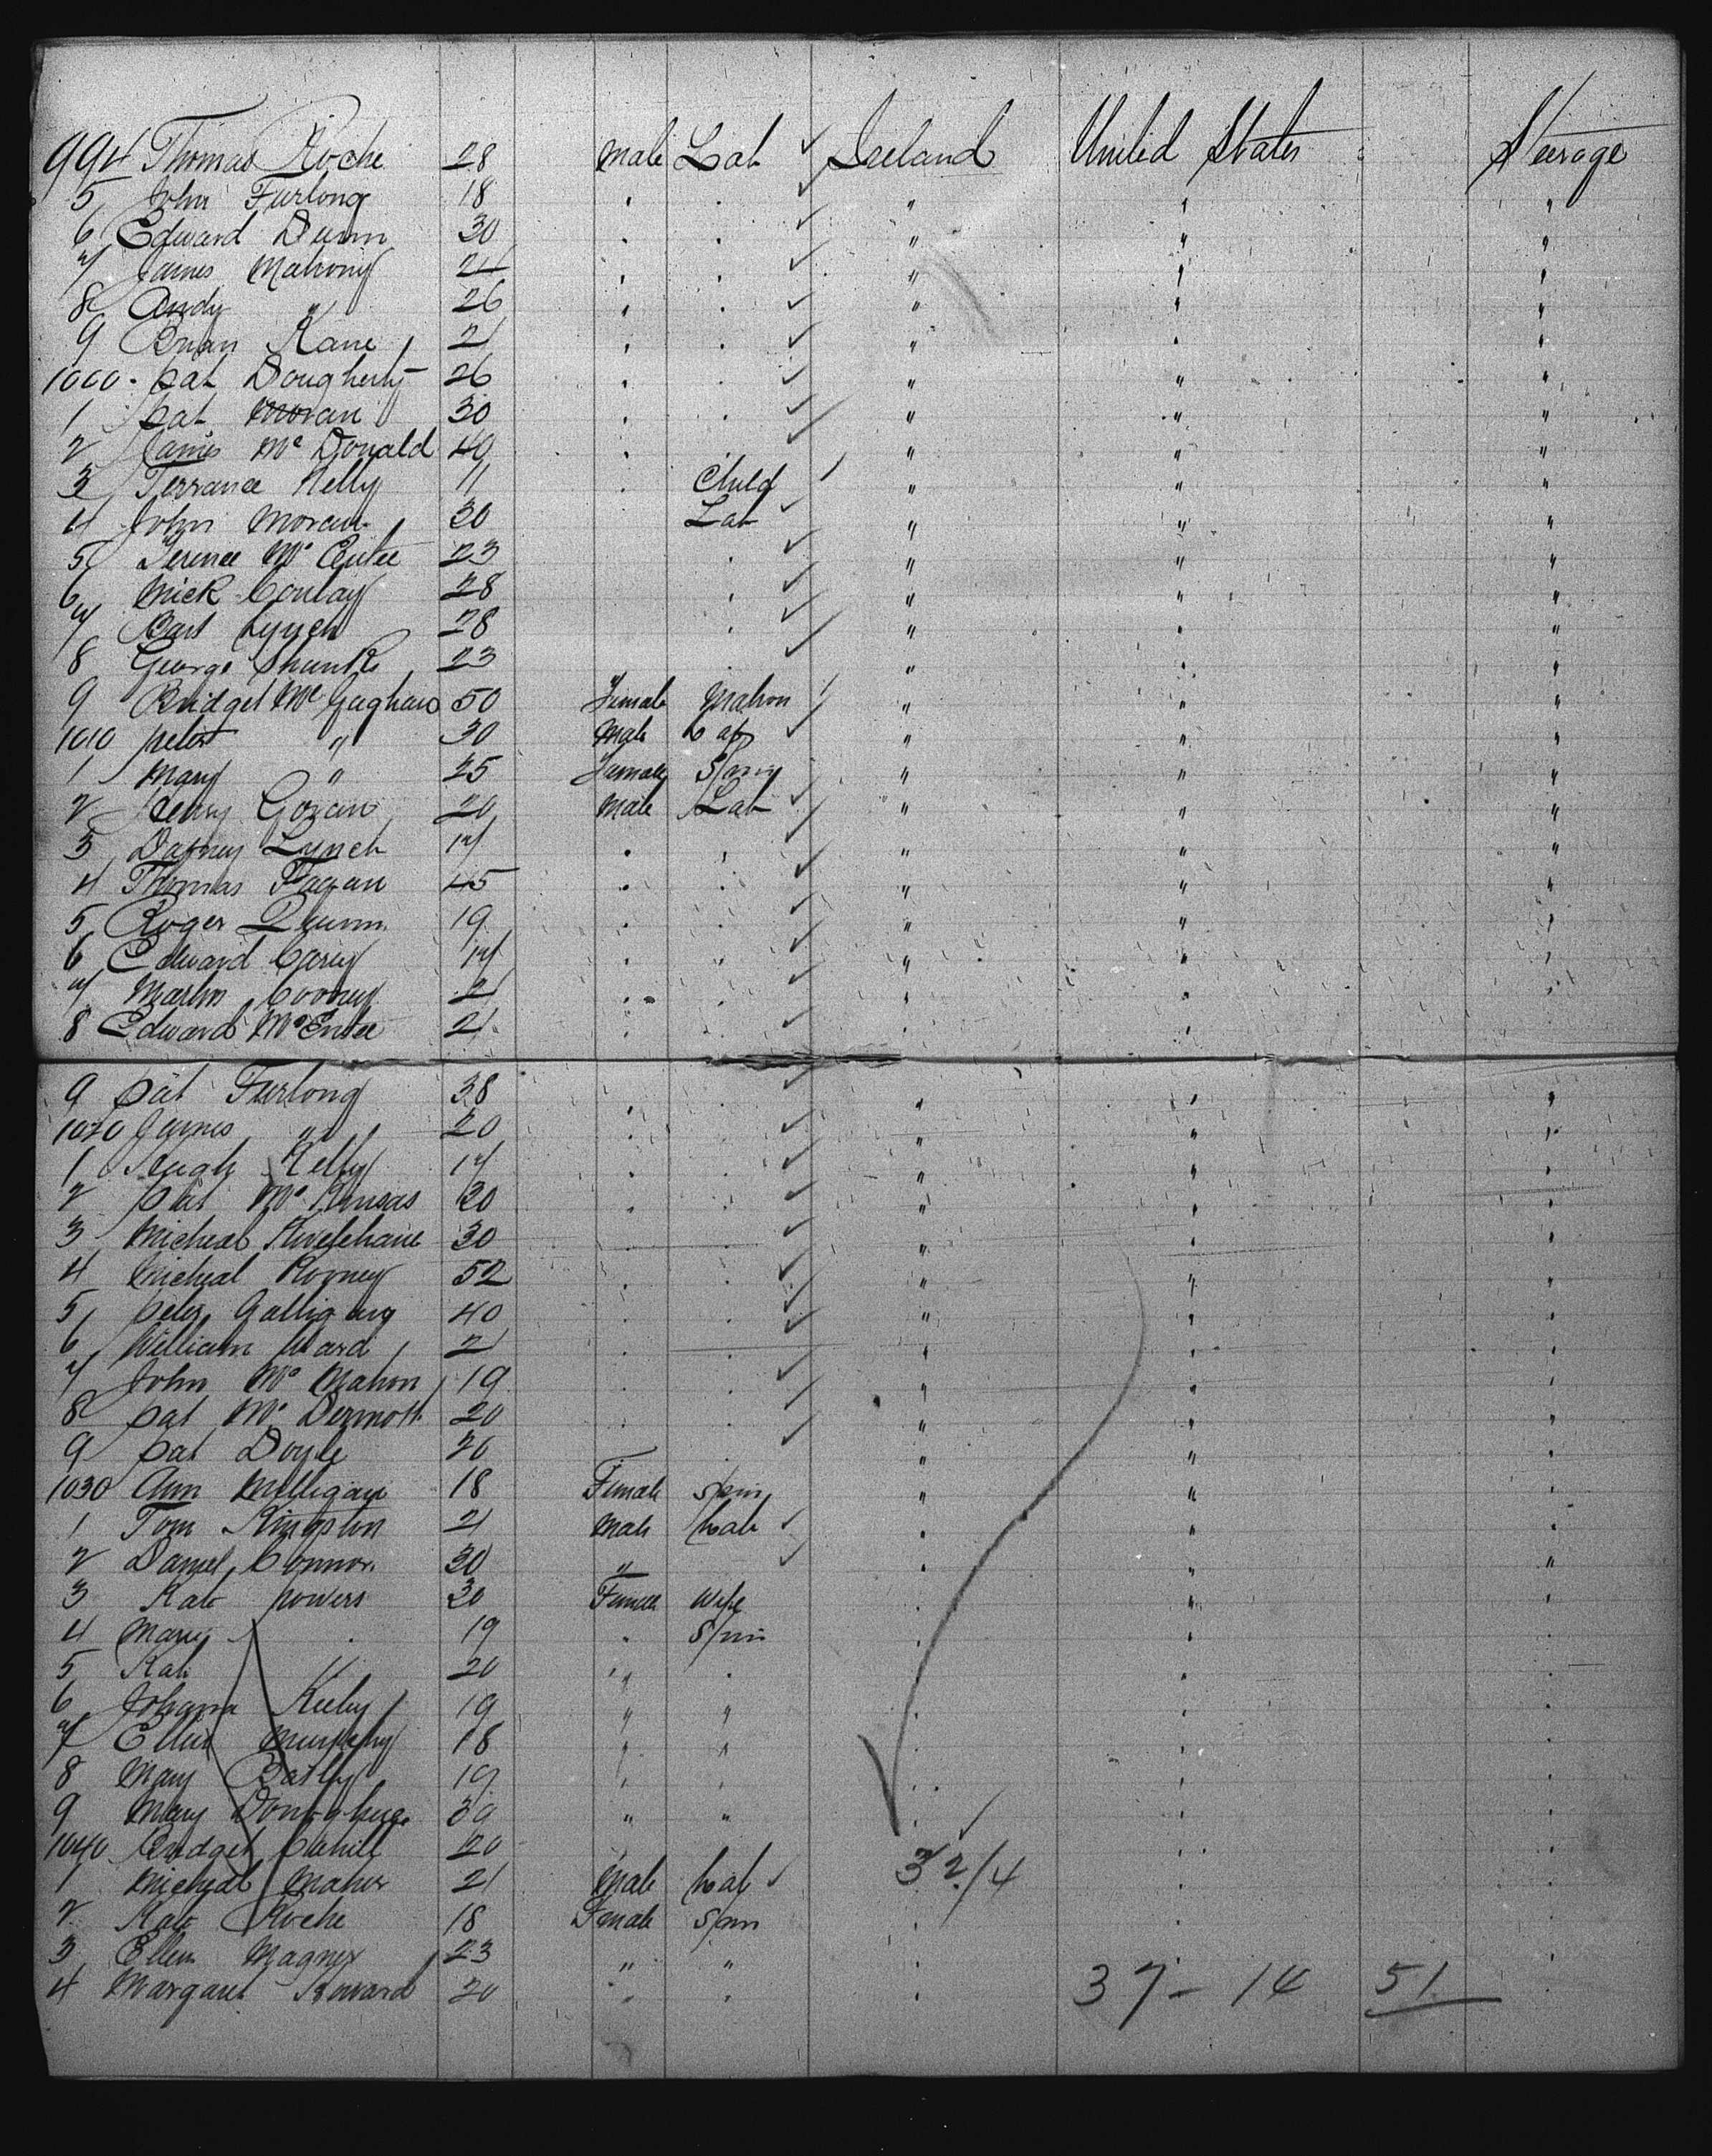 994 Thomas Roche 28 Male Lab Ireland United States Steerage
5 John Furlong 18 " " " " "
6 Edward Dunn 30 " " " " "
7 James Mahony 24 " " " " "
8 Andy " 26 " " " " "
9 Brian Kane 21 " " " " "
1000 Pat Dougherty 26 " " " " "
1 Pat Moran 30 " " " " "
2 James Mc Donald 40 " " " "
3 Terrance Kelly 11 " Child " " "
4 John Moran 30 Lab " " "
5 Terence Mc Entee 23 " " " "
6 Mick Conlay 28 " " " "
7 Bart Lynch 28 " " " "
8 George 23 " " " "
9 Bridget Mc 50 Female Matron " " "
1010 Peter " 30 Male Lab " " "
1 Mary " 25 Female Spin " " "
2 Henry 20 Male Lab " " "
3 Lynch 17 " " " " "
4 Thomas Fagan 45 " " " " "
5 Roger Quinn 19 " " " " "
6 Edward Carey 17 " " " " "
7 Martin Cooney 21 " " " " "
8 Edward McEntee 21 " " " " "
9 Pat Furlong 38 " " " " "
1020 James " 20 " " " " "
1 Hugh Kelly 17 " " " " "
2 Pat Mc 30 " " " " "
3 Micheal 30 " " " " "
4 Micheal Rooney 52 " " " " "
5 Peter 40 " " " " "
6 William Ward 21 " " " " "
7 John Mc Mahon 19 " " " " "
8 Pat Mc Dermott 20 " " " " "
9 Pat Doyle 26 " " "
1030 Ann Milligan 18 Female Spin " " "
1 Tom Kingston 21 Male Lab " " "
2 Daniel Connor 30 " " " "
3 Kate Powers 20 Female Wife " " "
4 Mary " 19 " Spin " " "
5 Kate " 20 " " " "
6 Johana 19 " " " " "
7 Ellen Murphy 18 " " " " "
8 Mary 19 " " " " "
9 Mary Donoghue 30 " " " " "
1040 Bridget Cahill 20 " "
1 Micheal Maher 21 Male Lab 32/4 " "
2 Kate Roche 18 Female Spin " " "
3 Ellen Magner 23 " " " " "
4 Margaret Howard 20 " " " 37 - 14 51 "